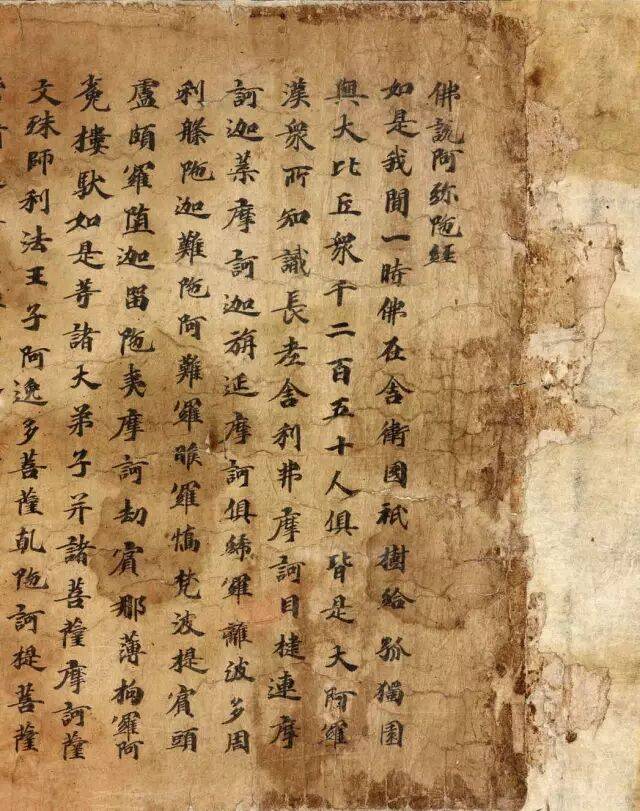 佛說阿弥陁經
如是我聞一時佛在舍衛國祇樹給孤獨園
與大比丘衆千二百五十人俱皆是大阿羅
漢衆所知識長老舍利弗摩訶目揵連摩
訶迦葉摩訶迦旃延摩訶俱絺羅離波多周
利槃陁迦難陁阿難羅睺羅憍梵波提賓頭
盧頗羅墮迦留陁夷摩訶劫賓那薄拘羅阿
㝹樓馱如是等諸大弟子并諸菩薩摩訶薩
文殊師利法王子阿逸多菩薩乾陁訶提菩薩